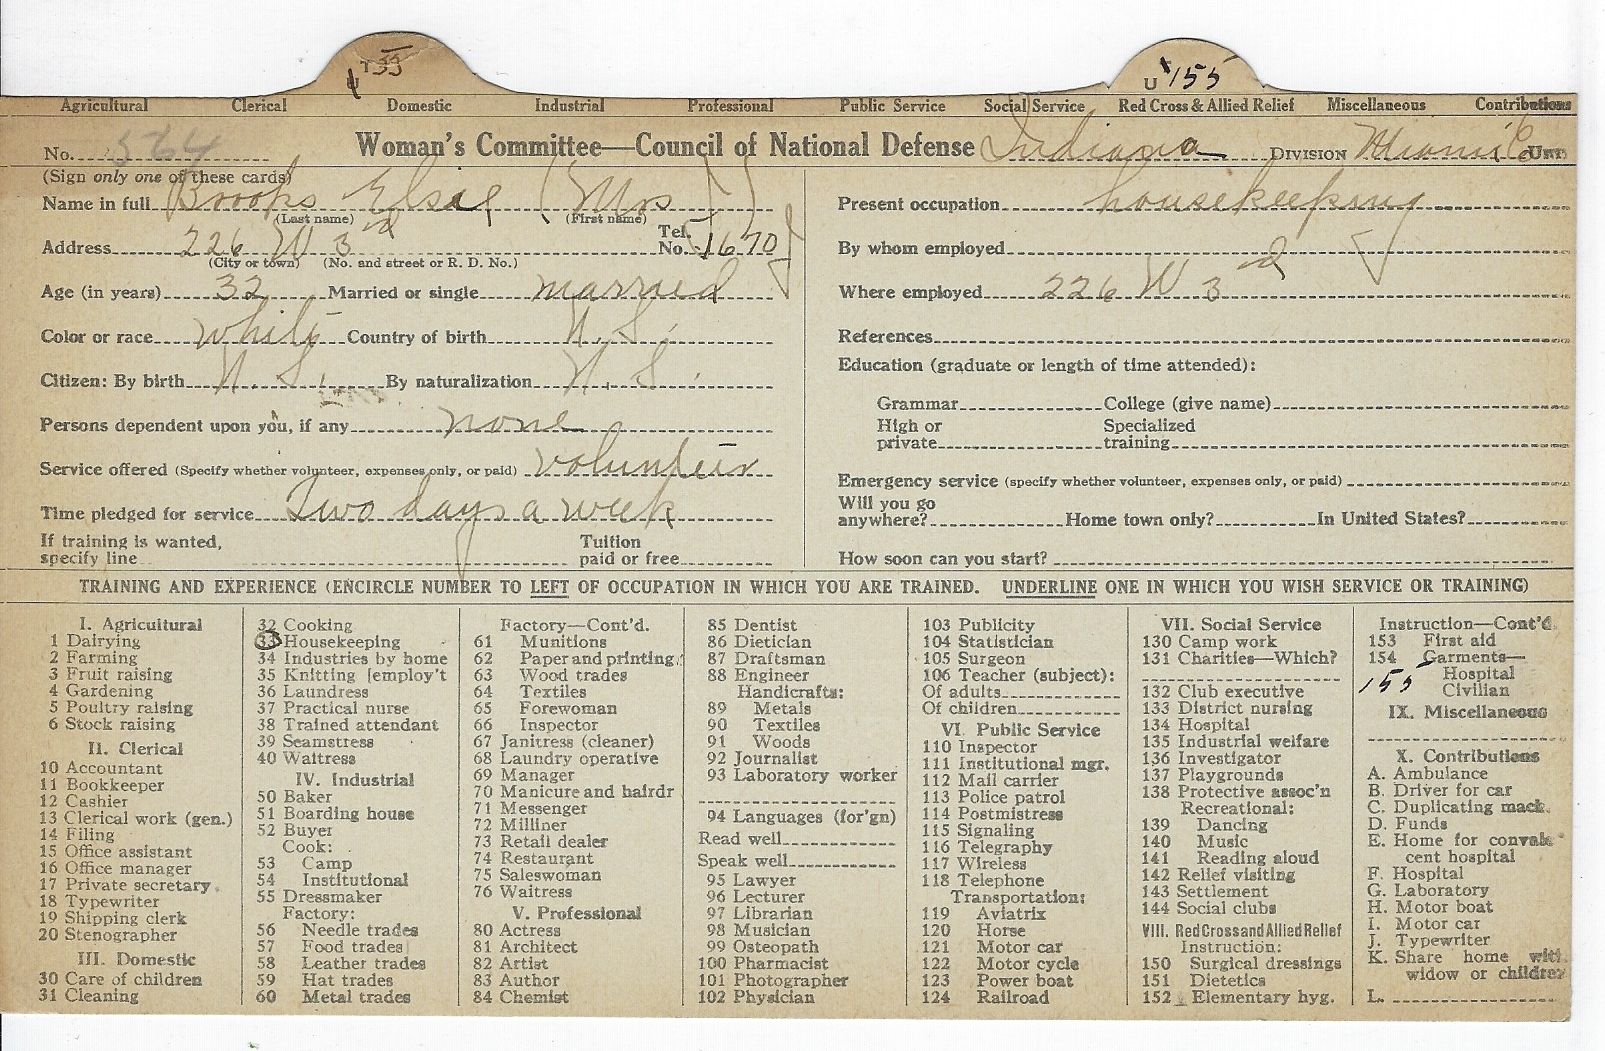 U 155
Agricultural Clerical Domestic Industrial Professional Public Service Social Service Red Cross & Allied Relief Miscellaneous Contributions
No. 564 Woman's Committee—Council of National Defense Indiana DIVISION Miami Co UNIT
(Sign only one of these cards)
Name in full Brooks Elsie (Mrs J)
(Last name) (First name)
Address 226 W 3rd Tel. No. 1670
(City or town) (No. and street or R. D. No.)
Age (in years) 32 Married or single married
Color or race white Country of birth U. S.
Citizen: By birth U. S. By naturalization U. S.
Persons dependent upon you, if any none
Service offered (Specify whether volunteer, expenses only, or paid) volunteer
Time pledged for service Two days a week
If training is wanted, specify line Tuition paid or free
Present occupation housekeeping
By whom employed
Where employed 226 W 3rd
References
Education (graduate or length of time attended):
Grammar College (give name)
High or private Specialized training
Emergency service (specify whether volunteer, expenses only, or paid)
Will you go anywhere? Home town only? In United States?
How soon can you start?
TRAINING AND EXPERIENCE (ENCIRCLE NUMBER TO LEFT OF OCCUPATION IN WHICH YOU ARE TRAINED. UNDERLINE ONE IN WHICH YOU WISH SERVICE OR TRAINING)
I. Agricultural
1 Dairying
2 Farming
3 Fruit raising
4 Gardening
5 Poultry raising
6 Stock raising
II. Clerical
10 Accountant
11 Bookkeeper
12 Cashier
13 Clerical work (gen.)
14 Filing
15 Office assistant
16 Office manager
17 Private secretary
18 Typewriter
19 Shipping clerk
20 Stenographer
III. Domestic
30 Care of children
31 Cleaning
32 Cooking
33 Housekeeping
34 Industries by home
35 Knitting [employ't
36 Laundress
37 Practical nurse
38 Trained attendant
39 Seamstress
40 Waitress
IV. Industrial
50 Baker
51 Boarding house
52 Buyer
Cook:
53 Camp
54 Institutional
55 Dressmaker
Factory:
56 Needle trades
57 Food trades
58 Leather trades
59 Hat trades
60 Metal trades
Factory—Cont'd.
61 Munitions
62 Paper and printing
63 Wood trades
64 Textiles
65 Forewoman
66 Inspector
67 Janitress (cleaner)
68 Laundry operative
69 Manager
70 Manicure and hairdr
71 Messenger
72 Milliner
73 Retail dealer
74 Restaurant
75 Saleswoman
76 Waitress
V. Professional
80 Actress
81 Architect
82 Artist
83 Author
84 Chemist
85 Dentist
86 Dietician
87 Draftsman
88 Engineer
Handicrafts:
89 Metals
90 Textiles
91 Woods
92 Journalist
93 Laboratory worker
94 Languages (for'gn)
Read well
Speak well
95 Lawyer
96 Lecturer
97 Librarian
98 Musician
99 Osteopath
100 Pharmacist
101 Photographer
102 Physician
103 Publicity
104 Statistician
105 Surgeon
106 Teacher (subject):
Of adults
Of children
VI. Public Service
110 Inspector
111 Institutional mgr.
112 Mail carrier
113 Police patrol
114 Postmistress
115 Signaling
116 Telegraphy
117 Wireless
118 Telephone
Transportation:
119 Aviatrix
120 Horse
121 Motor car
122 Motor cycle
123 Power boat
124 Railroad
VII. Social Service
130 Camp work
131 Charities—Which?
132 Club executive
133 District nursing
134 Hospital
135 Industrial welfare
136 Investigator
137 Playgrounds
138 Protective assoc'n
Recreational:
139 Dancing
140 Music
141 Reading aloud
142 Relief visiting
143 Settlement
144 Social clubs
VIII. Red Cross and Allied Relief
Instruction:
150 Surgical dressings
151 Dietetics
152 Elementary hyg.
Instruction—Cont'd.
153 First aid
154 Garments—
Hospital
155 Civilian
IX. Miscellaneous
X. Contributions
A. Ambulance
B. Driver for car
C. Duplicating mach.
D. Funds
E. Home for convales
cent hospital
F. Hospital
G. Laboratory
H. Motor boat
I. Motor car
J. Typewriter
K. Share home with
widow or children
L.